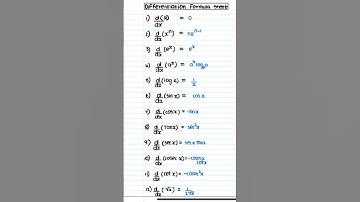 Differentiation Formula sheet
1) d/dx (k) = 0
2) d/dx (xⁿ) = nxⁿ⁻¹
3) d/dx (eˣ) = eˣ
4) d/dx (aˣ) = aˣ log a
5) d/dx (log x) = 1/x
6) d/dx (sin x) = cos x
7) d/dx (cos x) = -sin x
8) d/dx (tan x) = sec²x
9) d/dx (sec x) = sec x tan x
10) d/dx (cosec x) = -cosec x cot x
11) d/dx (cot x) = -cosec²x
12) d/dx (√x) = 1/2√x